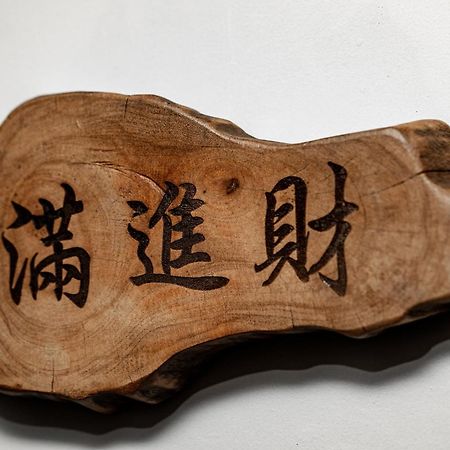 財進滿